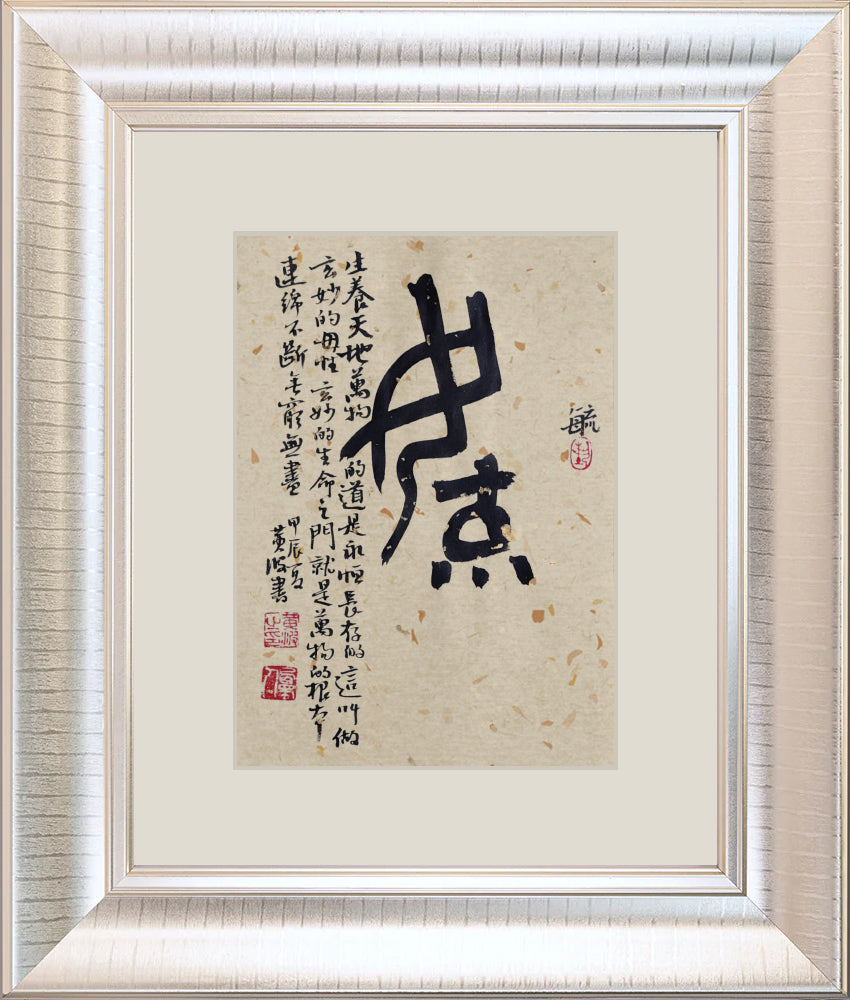 毓
生養天地萬物的道是永恒長存的這叫做
玄妙的母性玄妙的生命之門就是萬物的根本
連綿不斷无窮無盡
甲辰夏
黃波書